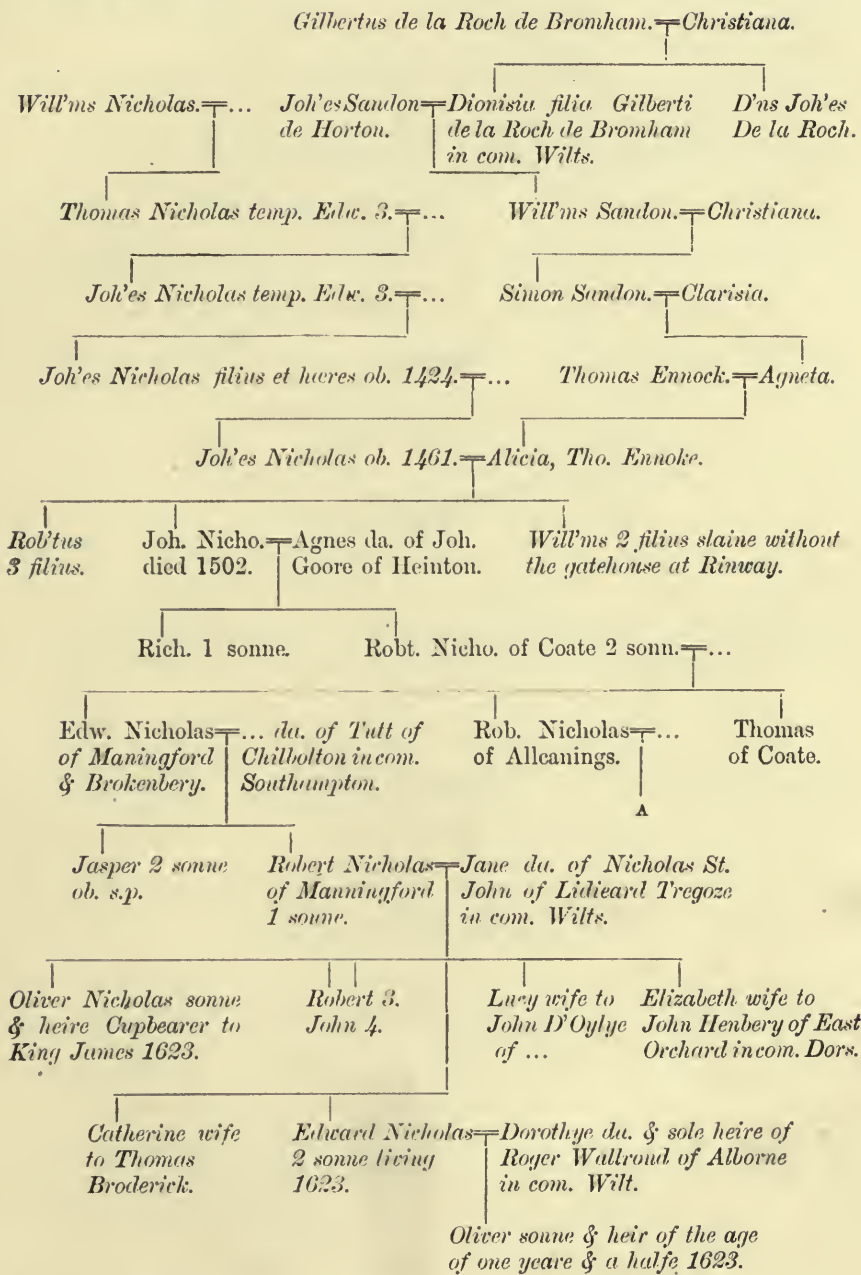 Gilbertus de la Roch de Bromham.=Christiana.
Will'ms Nicholas.=...
Joh'es Sandon=Dionisia filia Gilberti
de Horton.
de la Roch de Bromham
in com. Wilts.
D'ns Joh'es
De la Roch.
Thomas Nicholas temp. Edw. 3.=...
Will'ms Sandon.=Christiana.
Joh'es Nicholas temp. Edw. 3.=...
Simon Sandon.=Clarisia.
Joh'es Nicholas filius et hæres ob. 1424.=...
Thomas Ennock.=Agneta.
Joh'es Nicholas ob. 1461.=Alicia, Tho. Ennoke.
Rob'tus
3 filius.
Joh. Nicho.=Agnes da. of Joh.
died 1502.
Goore of Heinton.
Will'ms 2 filius slaine without
the gatehouse at Rinway.
Rich. 1 sonne.
Robt. Nicho. of Coate 2 sonn.=...
Edw. Nicholas=... da. of Tutt of
of Maningford
& Brokenbery.
Chilbolton in com.
Southampton.
Rob. Nicholas=...
of Allcanings.
A
Thomas
of Coate.
Jasper 2 sonne
ob. s.p.
Robert Nicholas=Jane da. of Nicholas St.
of Manningford
1 sonne.
John of Lidieard Tregoze
in com. Wilts.
Oliver Nicholas sonne
& heire Cupbearer to
King James 1623.
Robert 3.
John 4.
Lucy wife to
John D'Oylye
of ...
Elizabeth wife to
John Henbery of East
Orchard in com. Dors.
Catherine wife
to Thomas
Broderick.
Edward Nicholas=Dorothye da. & sole heire of
2 sonne living
1623.
Roger Wallrond of Alborne
in com. Wilt.
Oliver sonne & heir of the age
of one yeare & a halfe 1623.